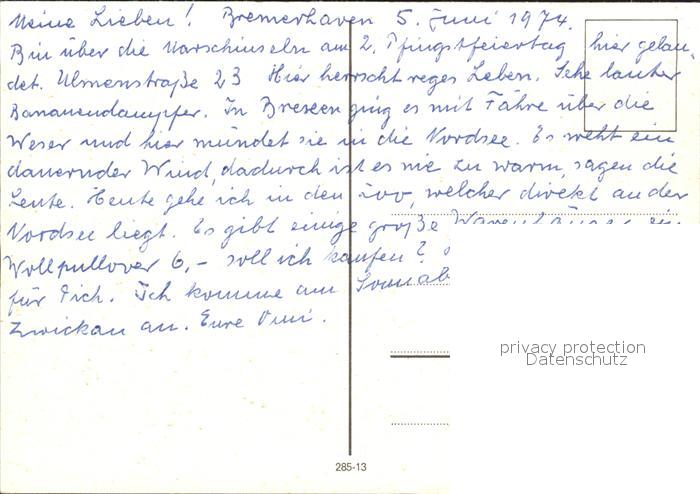 Meine Lieben! Bremerhaven 5. Juni 1974.
Bin über die Marschinseln am 2. Pfingstfeiertag hier gelan-
det. Ulmenstraße 23 Hier herrscht reges Leben. Sehe lauter
Bananendampfer. In Bremen ging es mit Fähre über die
Weser und hier mündet sie in die Nordsee. Es weht ein
dauernder Wind, dadurch ist es nie zu warm, sagen die
Leute. Heute gehe ich in den Zoo, welcher direkt an der
Nordsee liegt. Es gibt einige große Warenhäuser ein
Wollpullover 6,- soll ich kaufen?
für Dich. Ich komme am Sonnab
Zwickau an. Eure Omi.
privacy protection
Datenschutz
285-13